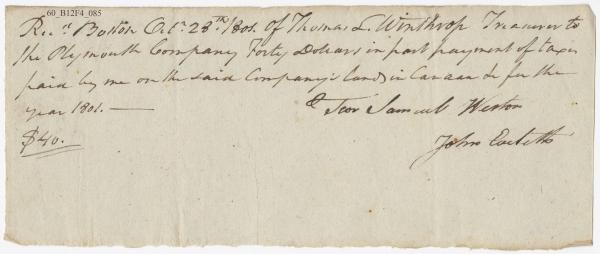 60_B12F4_085
Rec.d Boston Oct.r 28.th 1801. of Thomas L. Winthrop Treasurer to
the Plymouth Company Forty Dollars in part payment of taxes
paid by me on the said Company's lands in Canaan &c for the
year 1801. —
For Samuel Weston
$40.
John